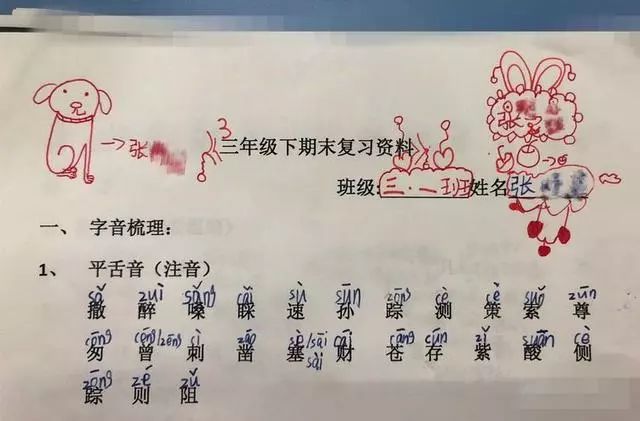 张
三年级下期末复习资料
班级:三.一班姓名张
一、 字音梳理:
1、 平舌音(注音)
sǎ zuì sǎng cǎi sù sūn zōng cè cè suǒ zūn
撒 醉 嗓 睬 速 孙 踪 测 策 索 尊
cōng cēng/zēng cì záo sè/sāi/sài cái cāng cún zǐ suān cè
匆 曾 刺 凿 塞 财 苍 存 紫 酸 侧
zōng zé zǔ
踪 则 阻